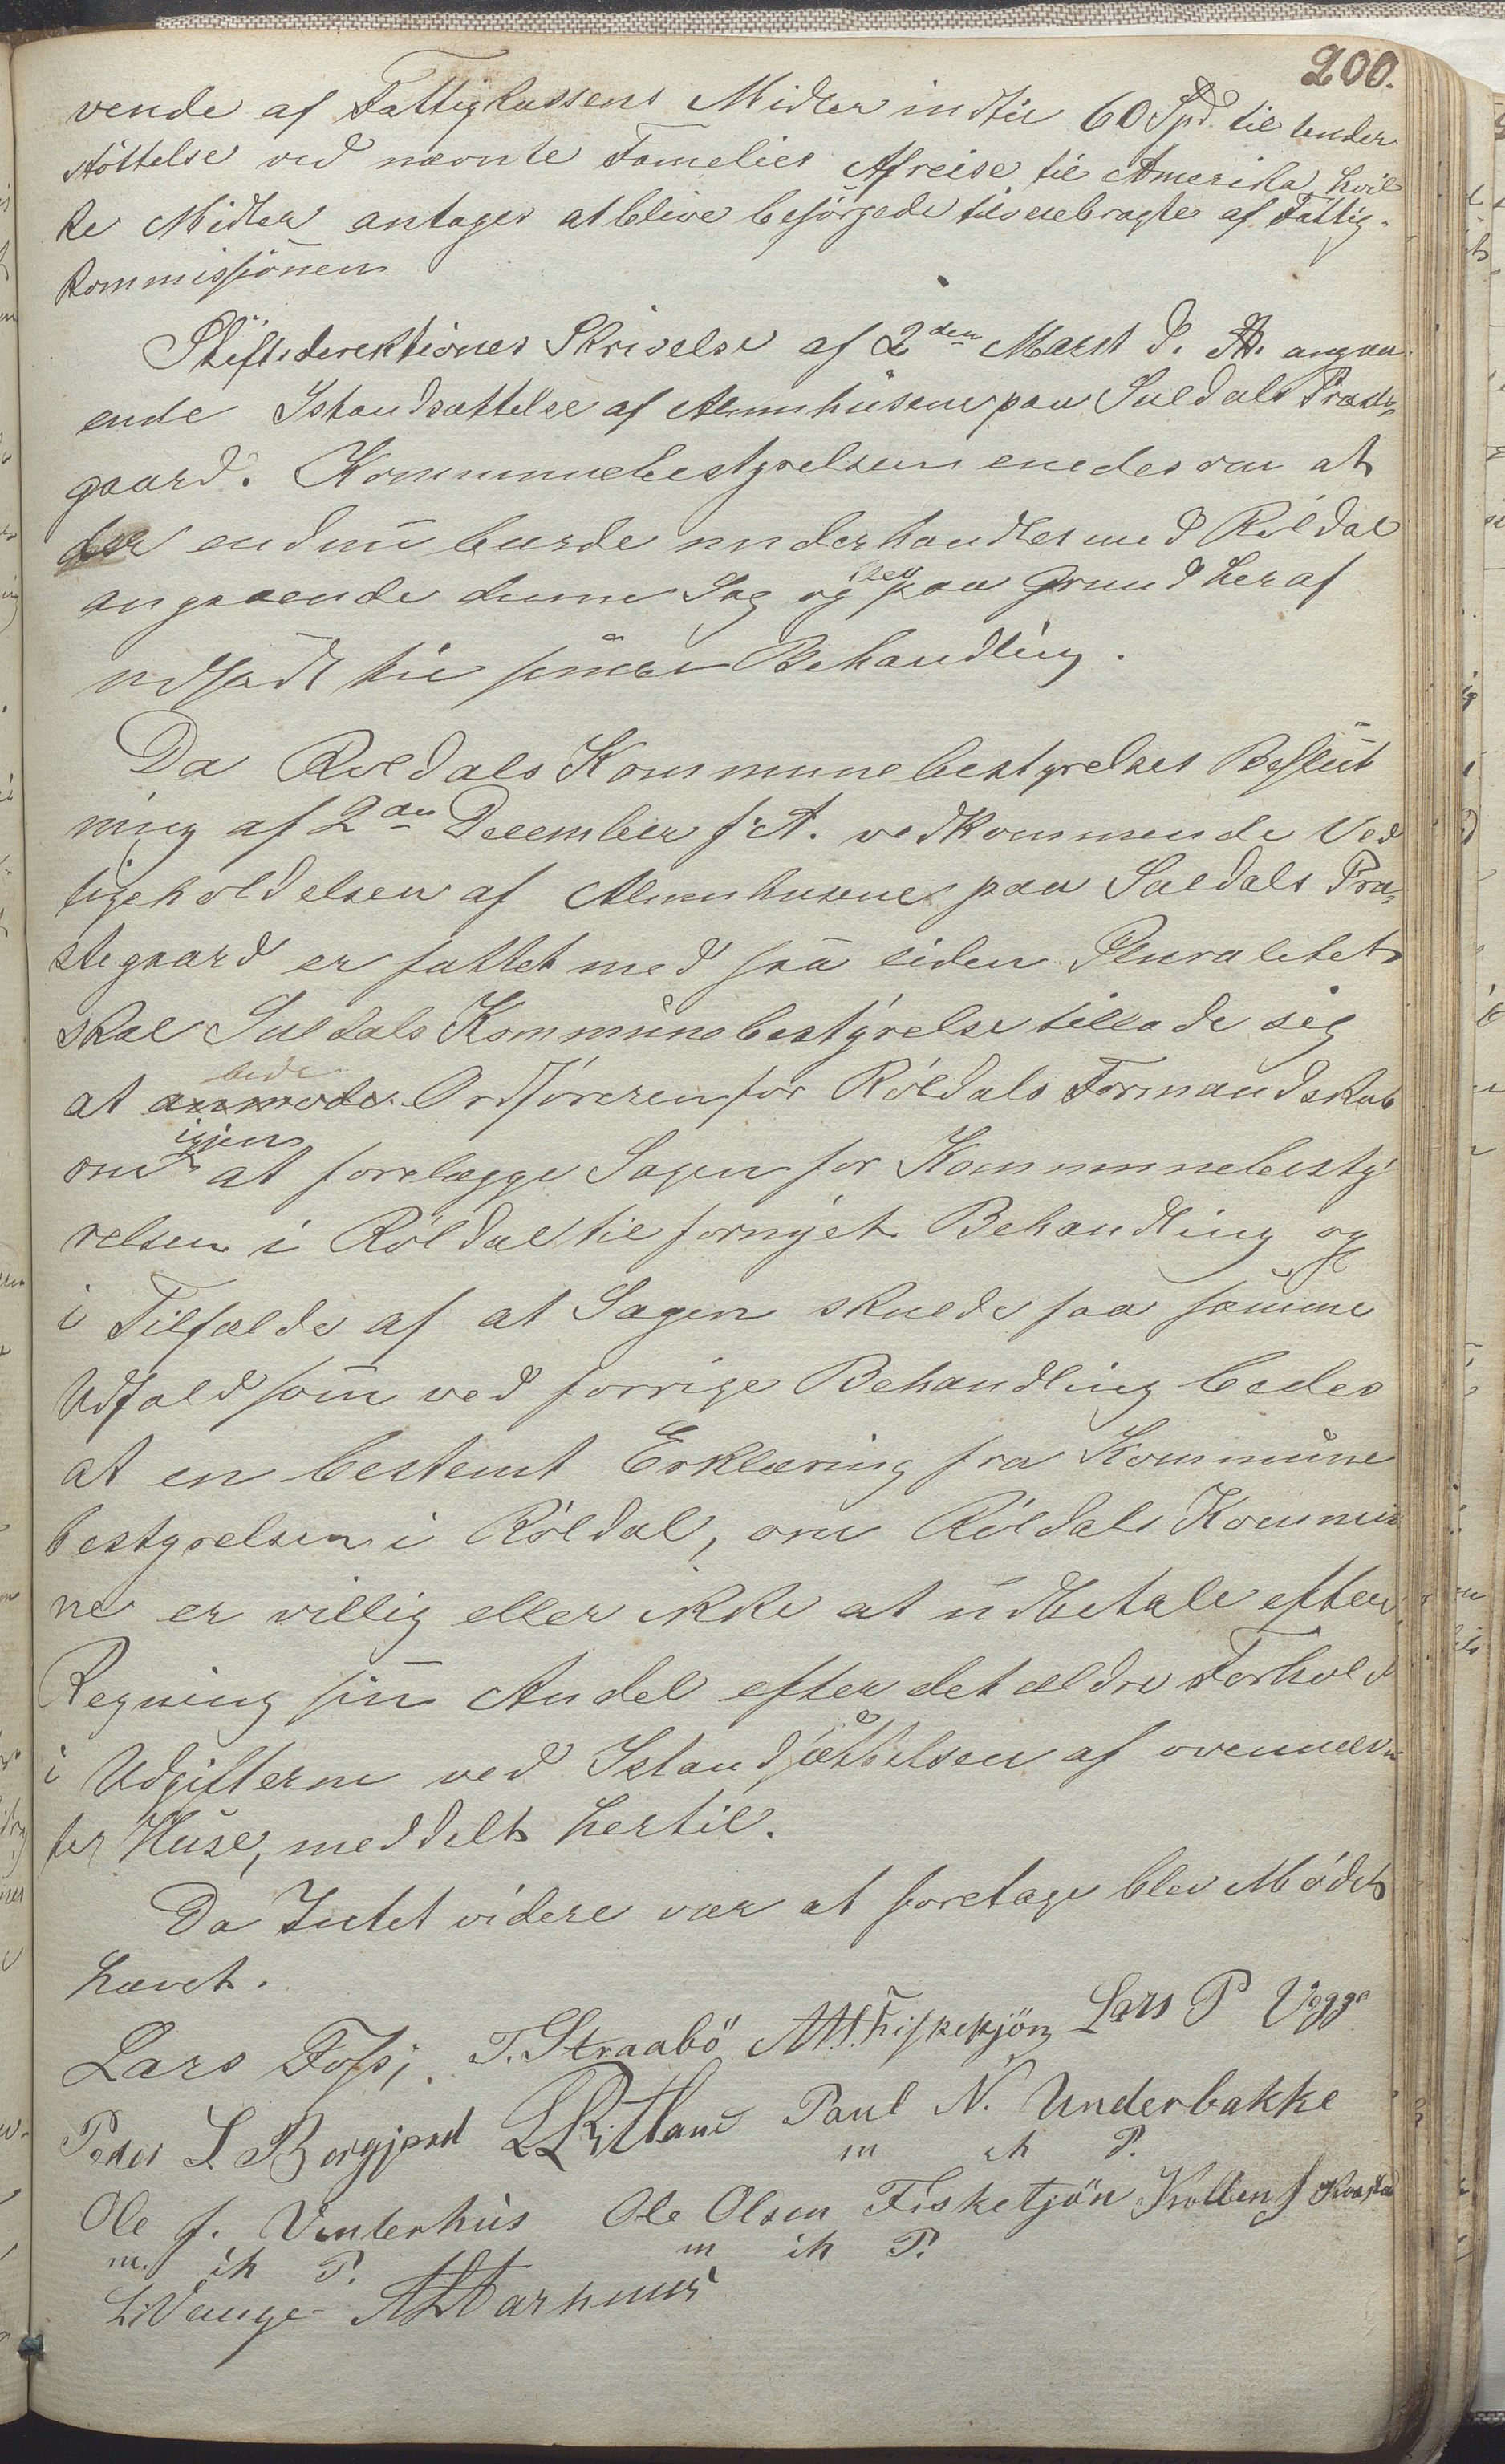 200.
vende af Fattigkassens Midler indtil 60 Spd. til Under-
støttelse ved nævnte Families Afreise til Amerika, hvil
ke Midler antages at blive besørgede tilveiebragte af Fattig-
kommissionen
Stiftsdirektionens Skrivelse af 2den Marst d. A. angaa
ende Istandsættelse af Almnhusene paa Suldals Præste
gaard. Kommunebestyrelsen enedes om at
der endnu burde underhandles med Röldal
angaaende denne Sag og blev paa Grund heraf
udsadt til senere Behandling.
Da Röldals Kommunebestyrelses Beslut
ning af 2den December f. A. vedkommende Ved
ligeholdelsen af Almnhusene paa Suldals Præ-
stegaard er fattet med saa liden Pluralitet
skal Suldals Kommunebestyrelse tillade sig
at anmode bede Ordföreren for Röldals Formandskab
om igjen at forelægge Sagen for Kommunebesty
relsen i Röldal til fornyet Behandling og
i Tilfælde af at Sagen skulde faa samme
Udfald som ved forrige Behandling bedes
at en bestemt Erklæring fra Kommune
bestyrelsen i Röldal, om Röldals Kommu
ne er villig eller ikke at udbetale efter
Regning sin Andel efter det ældre Forhold
i Udgifterne ved Istandsættelsen af ovennævn
ter Huse, meddelt hertil.
Da Intet videre var at foretage blev Mødet
hævet.
Lars Fossi. T. Straabö Fiskekjön Lars P Vegge
Peder L. Bergjord LRitland Paul N. Underbakke
m ih P.
Ole J. Vinterhus Ole Olsen Fisketjön Kolben J Kvæstad
m. ih P. m ih P.